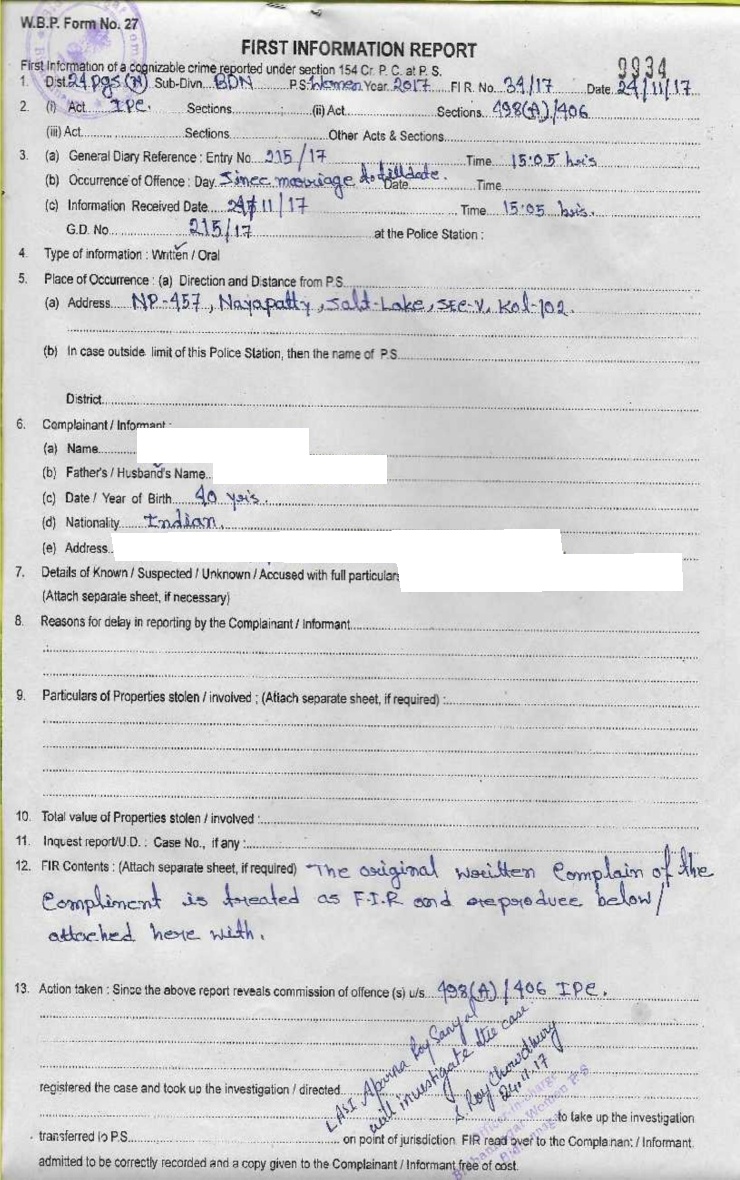 W.B.P. Form No. 27
FIRST INFORMATION REPORT
9934
First Information of a cognizable crime reported under section 154 Cr. P. C. at P. S.
1. Dist. 24 pgs (N) Sub-Divn. BDN P.S. Women Year 2017 F I R. No. 34/17 Date 24/11/17
2. (i) Act IPC. Sections (ii) Act Sections 498(A)/406
(iii) Act Sections Other Acts & Sections
3. (a) General Diary Reference : Entry No 215/17 Time 15:05 hrs
(b) Occurrence of Offence : Day Since marriage to till date. Date Time
(c) Information Received Date 24/11/17 Time 15:05 hrs.
G.D. No 215/17 at the Police Station :
4. Type of information : Written / Oral
5. Place of Occurrence : (a) Direction and Distance from P.S.
(a) Address NP-457, Nayapatty, Salt-Lake, SEC-V, Kol-102.
(b) In case outside limit of this Police Station, then the name of P.S.
District
6. Complainant / Informant :
(a) Name
(b) Father's / Husband's Name
(c) Date / Year of Birth 40 yrs.
(d) Nationality Indian.
(e) Address
7. Details of Known / Suspected / Unknown / Accused with full particular
(Attach separate sheet, if necessary)
8. Reasons for delay in reporting by the Complainant / Informant
9. Particulars of Properties stolen / involved ; (Attach separate sheet, if required) :
10. Total value of Properties stolen / involved :
11. Inquest report/U.D. : Case No., if any :
12. FIR Contents : (Attach separate sheet, if required) The original written Complain of the
Compliment is treated as F.I.R and reproduce below/
attached here with.
13. Action taken : Since the above report reveals commission of offence (s) u/s 498(A)/406 IPC.
LASI Aparna Roy Sanyal
will investigate the case
S. Roy Chowdhury
24.11.17
registered the case and took up the investigation / directed
to take up the investigation
transferred to P.S. on point of jurisdiction FIR read over to the Complainant / Informant
admitted to be correctly recorded and a copy given to the Complainant / Informant free of cost.